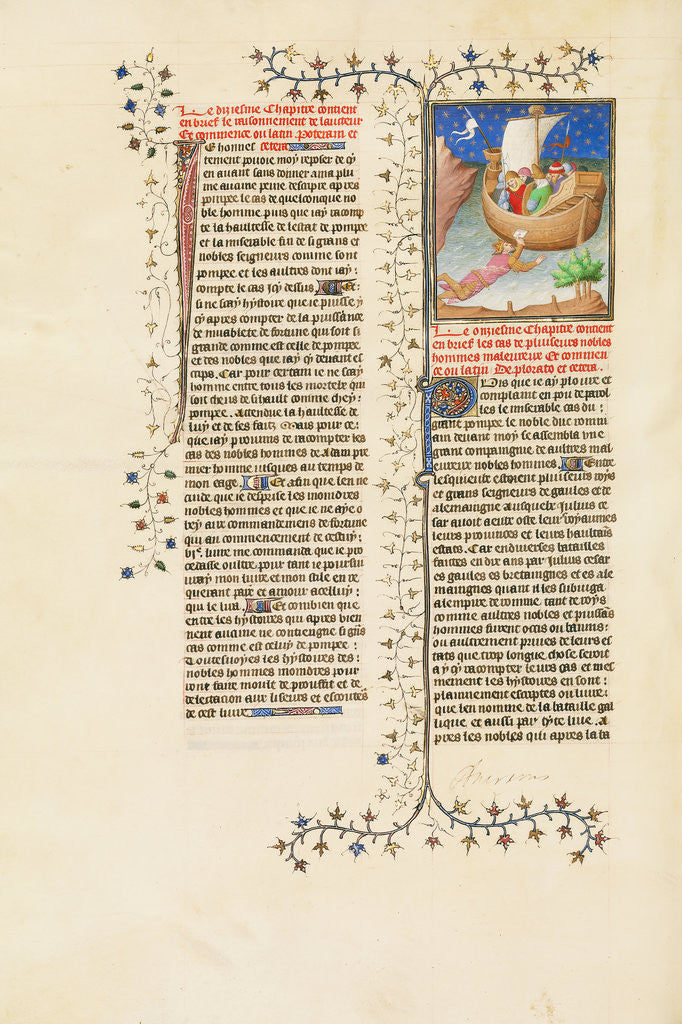 Le diziesme Chapitre contient
en brief le raisonnement de lauteur
Et commence ou latin Poteram et
cetera
Et honnes
tement pouoie moy reposer de cy
en auant sans donner a ma plu
me aucune peine descripre apres
pompee le cas de quelconque no
ble homme puis que iay racomp
te la haultesse de lestat de pompee
et la miserable fin de si grans et
nobles seigneurs comme sont
pompee et les aultres dont iay
compte le cas icy dessus Et
si ne scay hystoire que ie puisse y
cy apres compter de la puissance
de muablete de fortune qui soit si
grande comme est celle de pompee
et des nobles que iay cy deuant es
crips. Car pour certain ie ne scay
homme entre tous les mortelz qui
soit cheus de si hault comme chey
pompee. Attendue la haultesse de
luy et de ses faiz Mais pour ce
que iay promis de racompter les
cas des nobles hommes de adam pre
mier homme iusques au temps de
mon eage. Et afin que len ne
cuide que ie desprise les moindres
nobles hommes et que ie ne aye o
bey aux commandemens de fortune
qui au commencement de cestuy
vi.e liure me commanda que ie pro
cedasse oultre pour tant ie poursui
uray mon liure et mon stile en re
querant paix et amour a celluy
qui le lira. Et combien que
entre les hystoires qui apres vien
nent aucune ne contiengne si gries
cas comme est celuy de pompee
Toutesuoyes les hystoires des
nobles hommes moindres pour
ront faire moult de prouffit et de
delectacion aux liseurs et escouteurs
de cest liure
Le onziesme Chapitre contient
en brief les cas de pluiseurs nobles
hommes maleureux Et commen
ce ou latin Deplorato et cetera.
Puis que ie ay ploure et
complaint en pou de parol
les le miserable cas du
grant pompee le noble duc rommain
deuant moy se assembla vne
grant compaingnie de aultres mal
eureux nobles hommes. Entre
lesquieux estoient pluiseurs roys
et grans seigneurs de gaules et de
alemaingne ausquelz Julius ce
sar auoit aeure oste leur royaumes
leurs prouinces et leurs haultains
estats. Car en diuerses batailles
faictes en dix ans par Julius cesar
es gaules es bretaingnes et es ale
maingnes quant il les subiuga
a lempire de romme tant de roys
comme aultres nobles et puissans
hommes furent occis ou bannis
ou aultrement priues de leurs es
tats que trop longue chose seroit
a y cy racompter leurs cas et mes
mement les hystoires en sont
plainnement escriptes ou liure
que len nomme de la bataille gal
lique et aussi par tyte liue. A
pres les nobles qui apres la ba